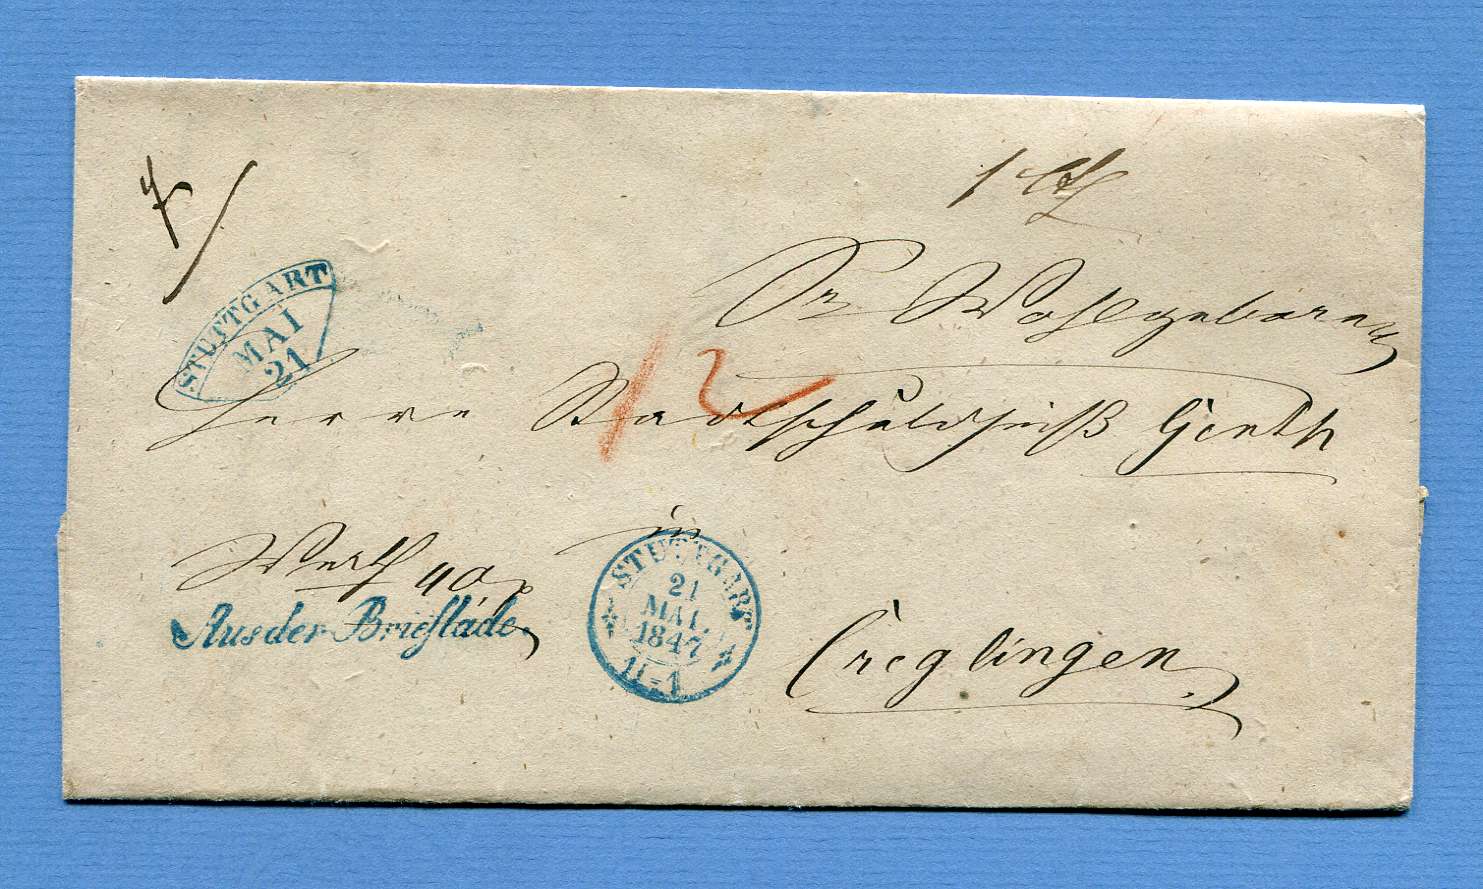 STUTTGART
MAI
21
Sr Wohlgeboren
Herrn Stadtschuldheiß
12
in
Aus der Brieflade.
STUTTGART
21
MAI.
1847
11=1
Creglingen